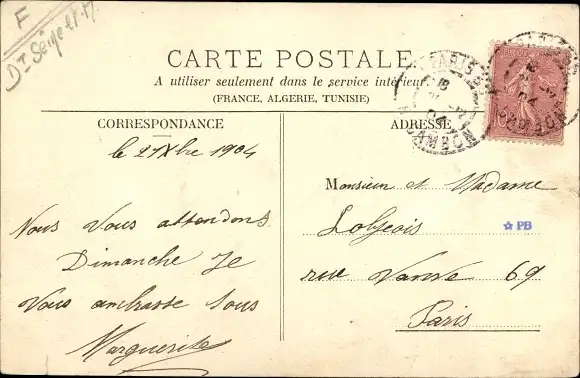 F
Dt Seine et M.
CARTE POSTALE
A utiliser seulement dans le service intérieur.
(FRANCE, ALGERIE, TUNISIE)
CORRESPONDANCE
ADRESSE
le 27 Xbre 1904
Nous Vous attendons
Dimanche Je
Vous embrasse Tous
Marguerite
Monsieur et Madame
Lobgeois
rue Vanve 69
Paris
PARIS
18
04
CAMBON
PB